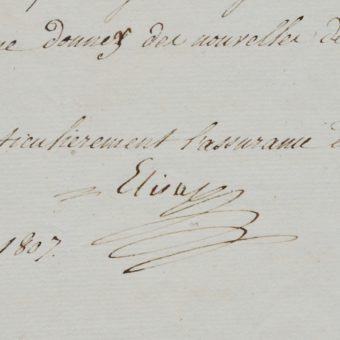 donnez des nouvelles de
ticulierement l'assurance
Elisa
1807.